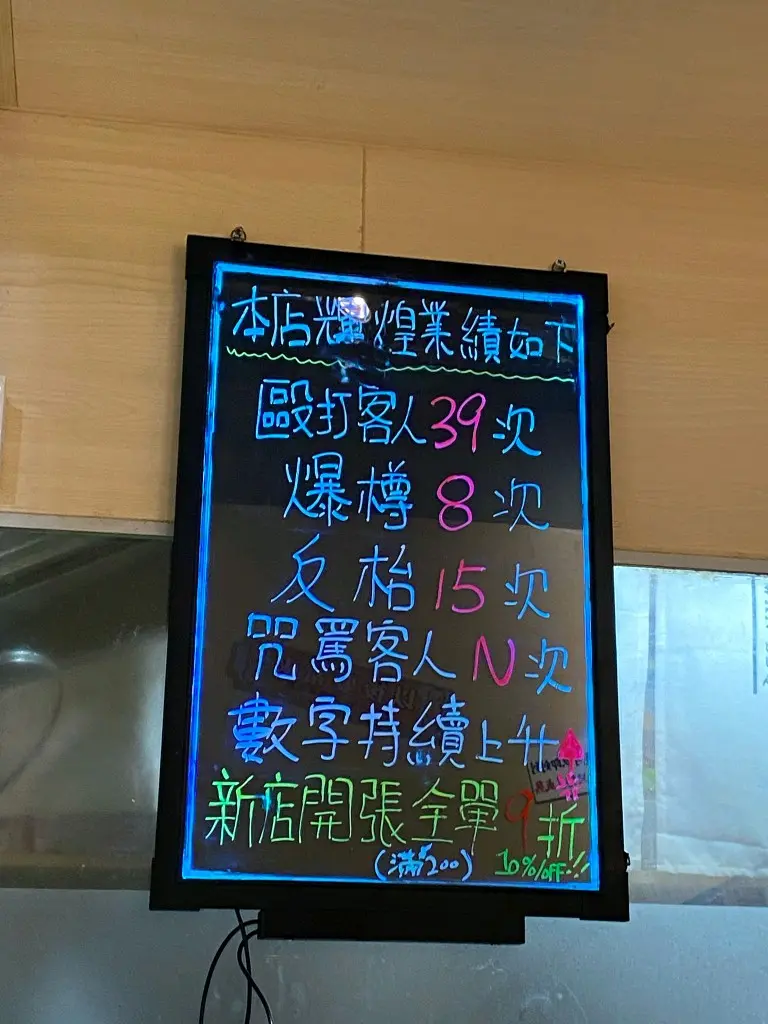 本店輝煌業績如下
毆打客人39次
爆樽8次
反枱15次
咒罵客人N次
數字持續上升
新店開張全單9折
(滿$200) 10%/OFF!!